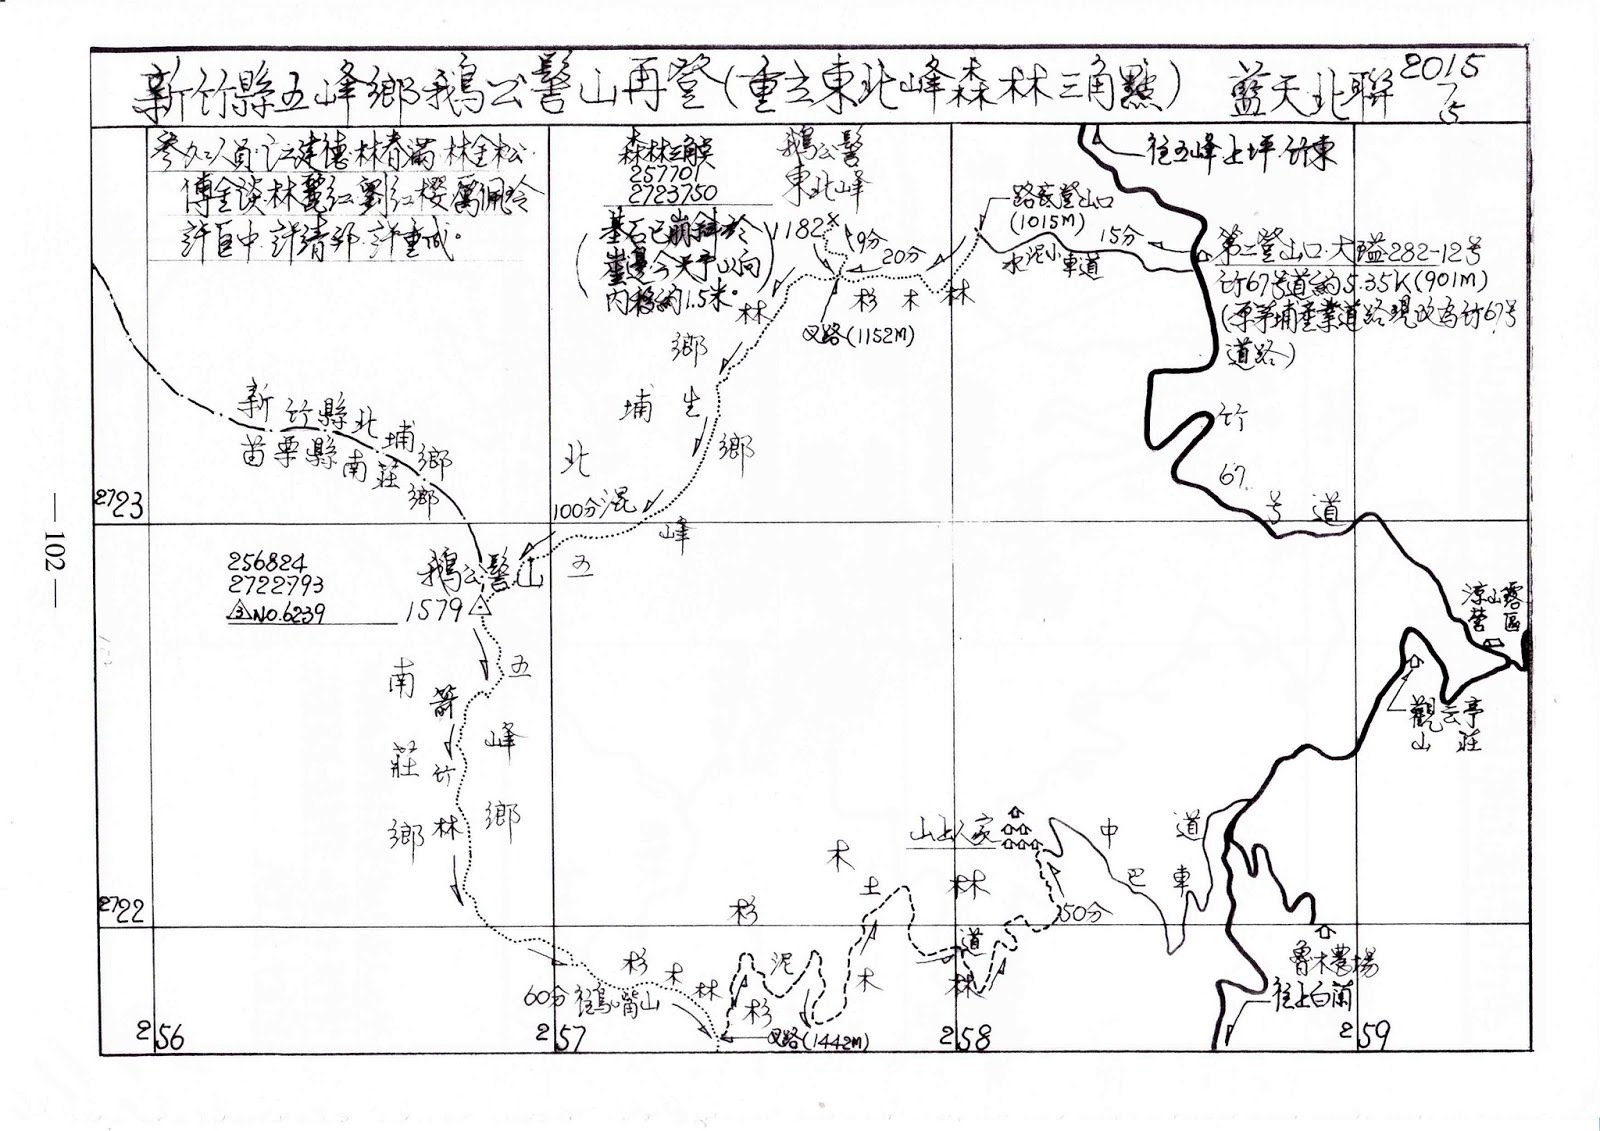 新竹縣五峰鄉鵝公髻山再登(重立東北峰森林三角點) 藍天北聯 2015/5
參加人員:江建德.林春滿.林金松.
傅金談.林麗紅.劉紅櫻.
許巨中.許清郎.許重成。
森林三角點
257701
2723750
(基石已崩斜於
崖邊今天予以向
內移約1.5米。)
鵝公髻
東北峰
1182
9分
20分
路底登山口
(1015M)
水泥小車道
15分
往五峰上坪.竹東
第二登山口.大隘282-12号
竹67号道約5.35K(901M)
(原茅埔產業道路現改為竹67号
道路)
叉路(1152M)
杉木林
林
新竹縣北埔鄉
苗栗縣南莊鄉
北埔鄉
五峰鄉
混生
100分
竹67号道
2723
256824
2722793
△3 NO.6239
鵝公髻山
1579
南莊鄉
五峰鄉
箭竹林
涼山露
營區
觀雲亭
山莊
山上人家
中巴車道
50分
杉木林
木
土
泥
道
林
杉木林
2722
魯木農場
往上白蘭
60分
往鳥嘴山
叉路(1442M)
256
257
258
259
—102—